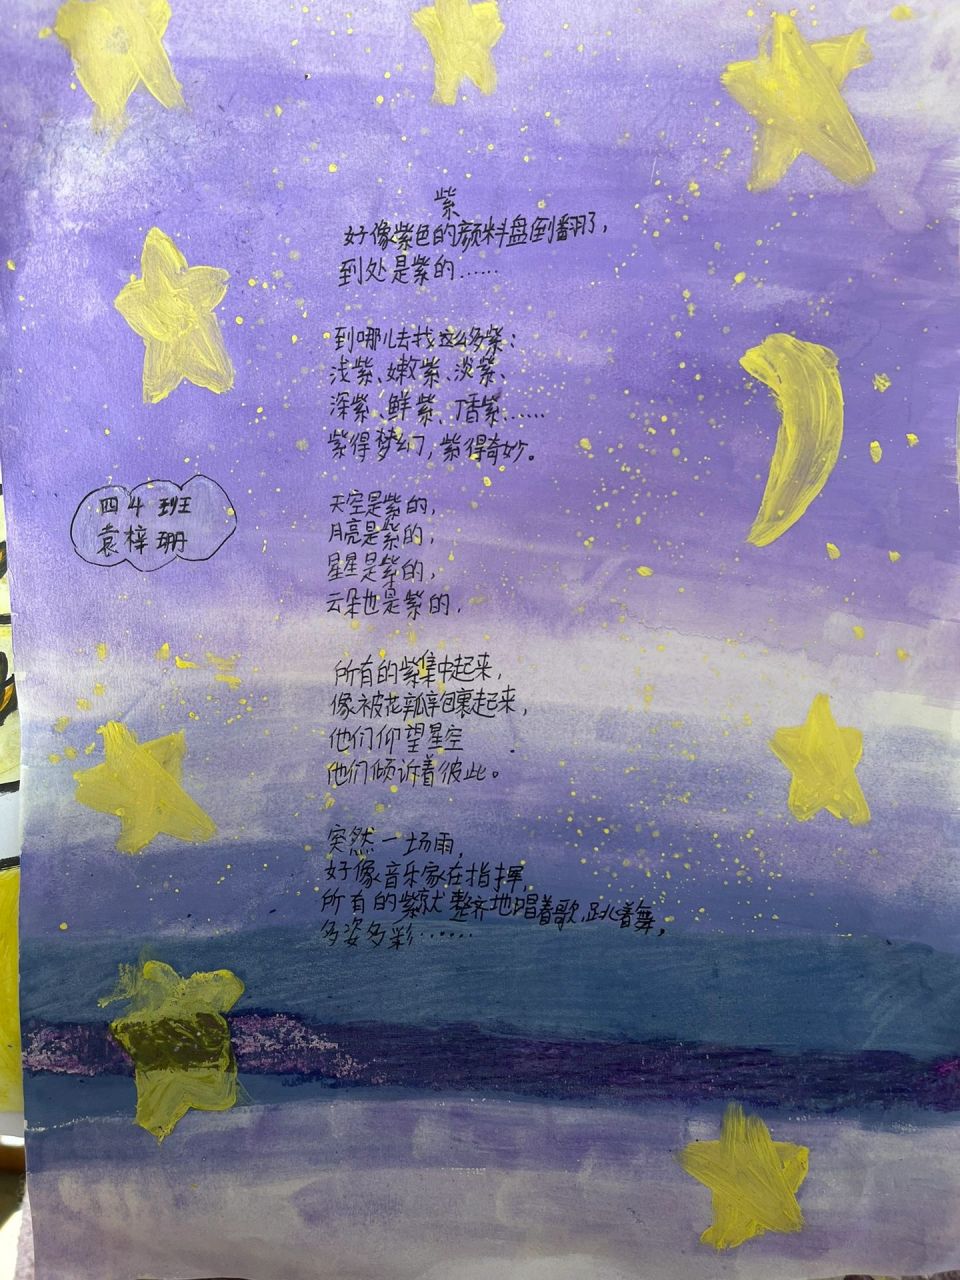 紫
好像紫色的颜料盘倒翻了，
到处是紫的……
到哪儿去找这么多紫：
浅紫、嫩紫、淡紫、
深紫、鲜紫、丁香紫……
紫得梦幻，紫得奇妙。
四4班
袁梓珊
天空是紫的，
月亮是紫的，
星星是紫的，
云朵也是紫的，
所有的紫集中起来，
像被花瓣包裹起来，
他们仰望星空
他们倾诉着彼此。
突然一场雨，
好像音乐家在指挥，
所有的紫就整齐地唱着歌，跳着舞，
多姿多彩……